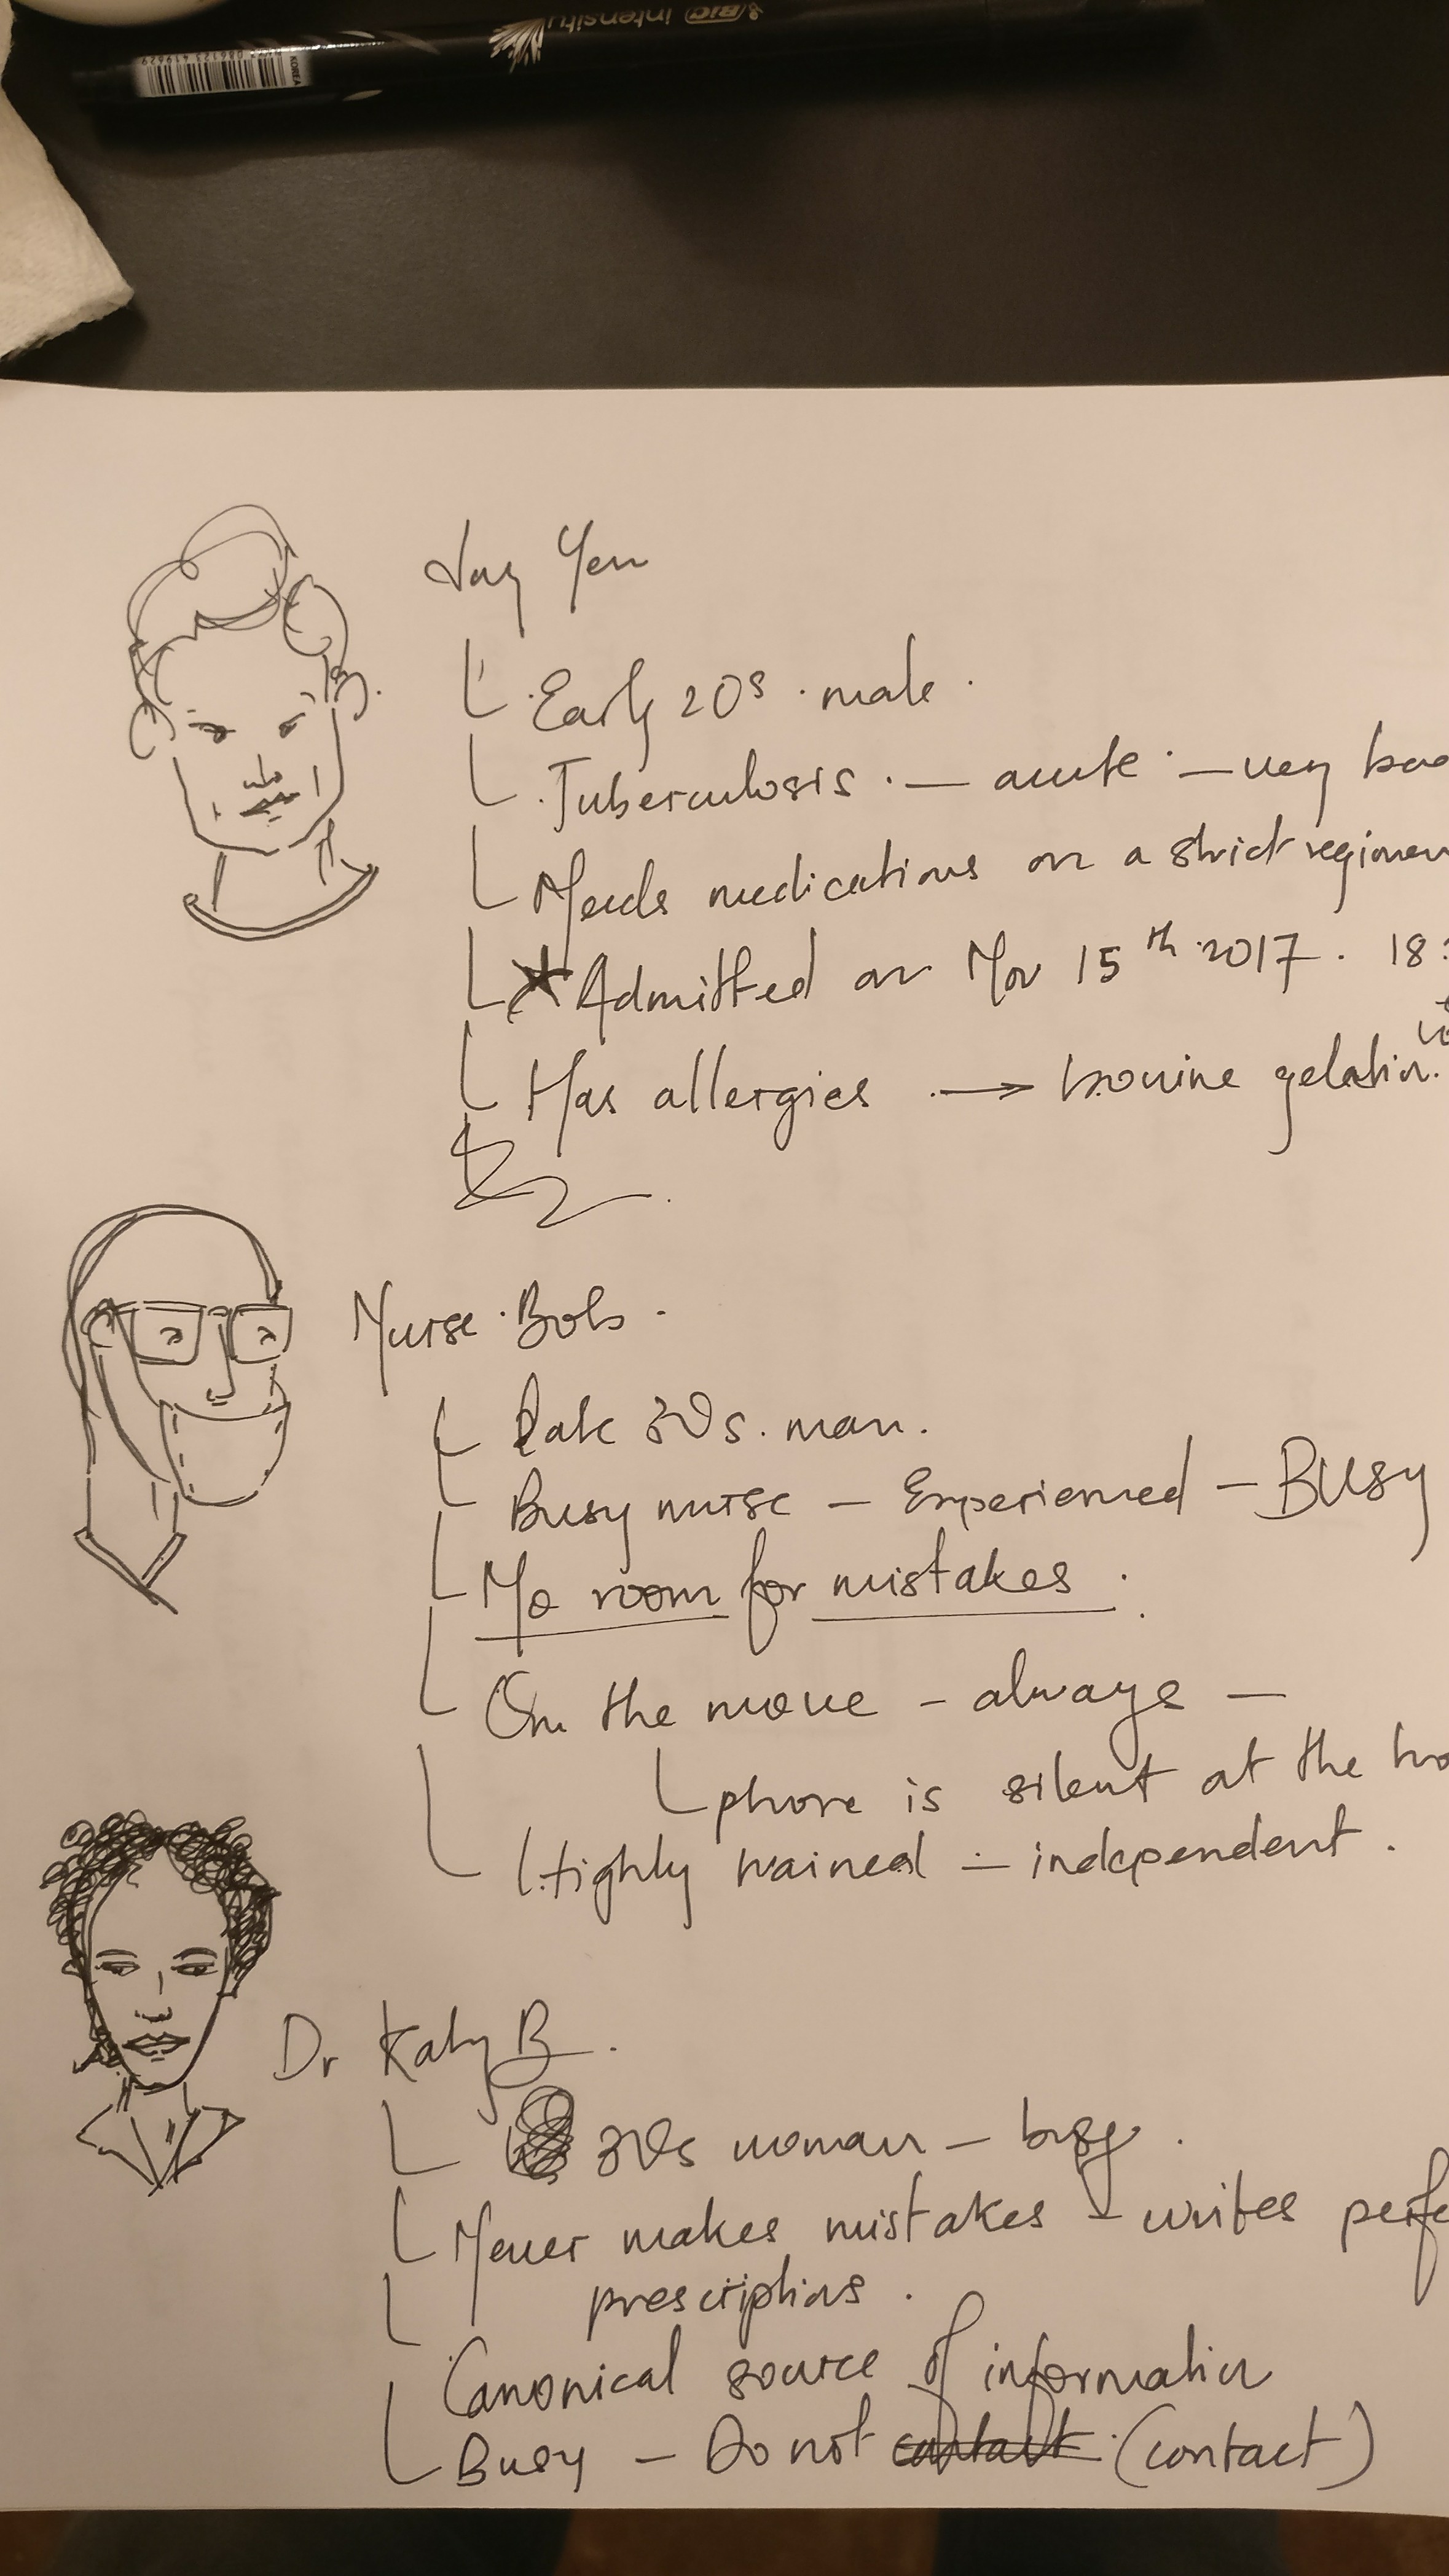 BIC intensity
KOREA
Jay Yen
Early 20s. male.
Tuberculosis. — acute — very
Needs medications on a strict regimen
Admitted on Nov 15th 2017. 18:
Has allergies → bovine gelatin.
Nurse Bob.
Late 30s. man.
Busy nurse — Experienced — BUSY
No room for mistakes.
On the move - always —
phone is silent at the
Highly trained — independent.
Dr Katy B.
30s woman — busy.
Never makes mistakes - writes
prescriptions.
Canonical source of information
Busy — Do not contact (contact)